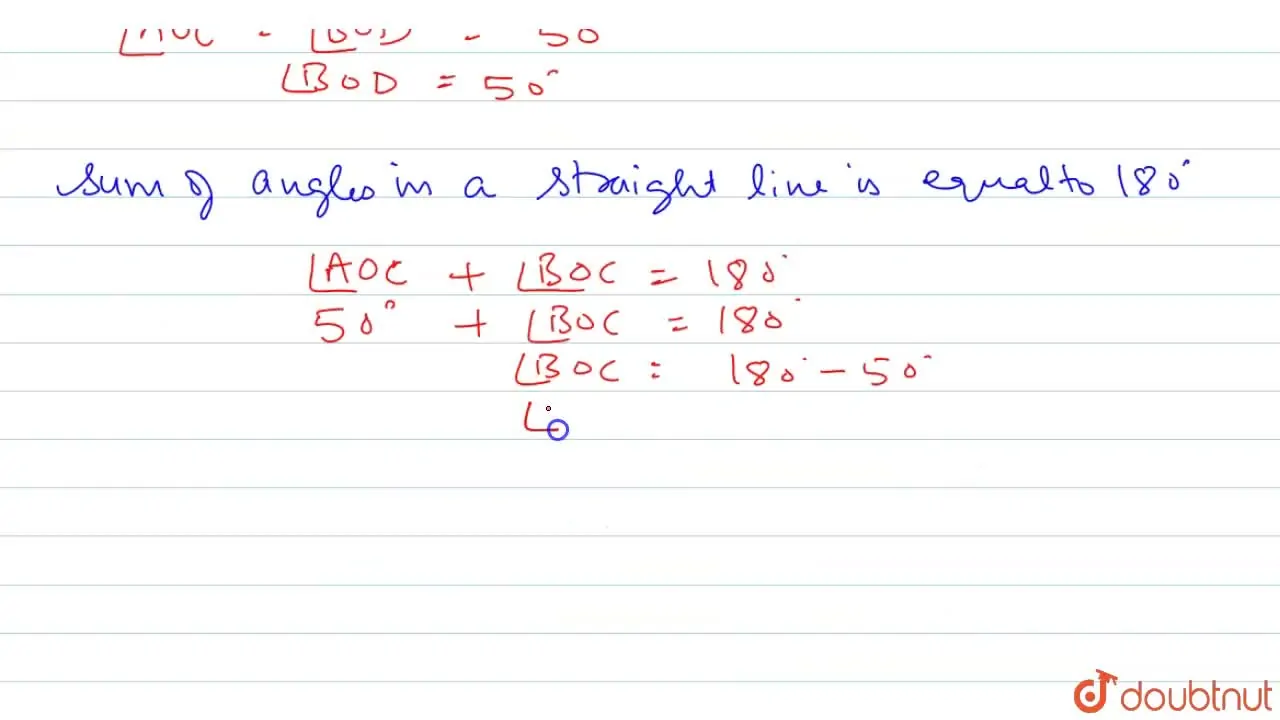 ∠AOC = ∠BOD = 50
∠BOD = 50°
Sum of angles in a straight line is equal to 180°
∠AOC + ∠BOC = 180°
50° + ∠BOC = 180°
∠BOC = 180° - 50°
∠
doubtnut